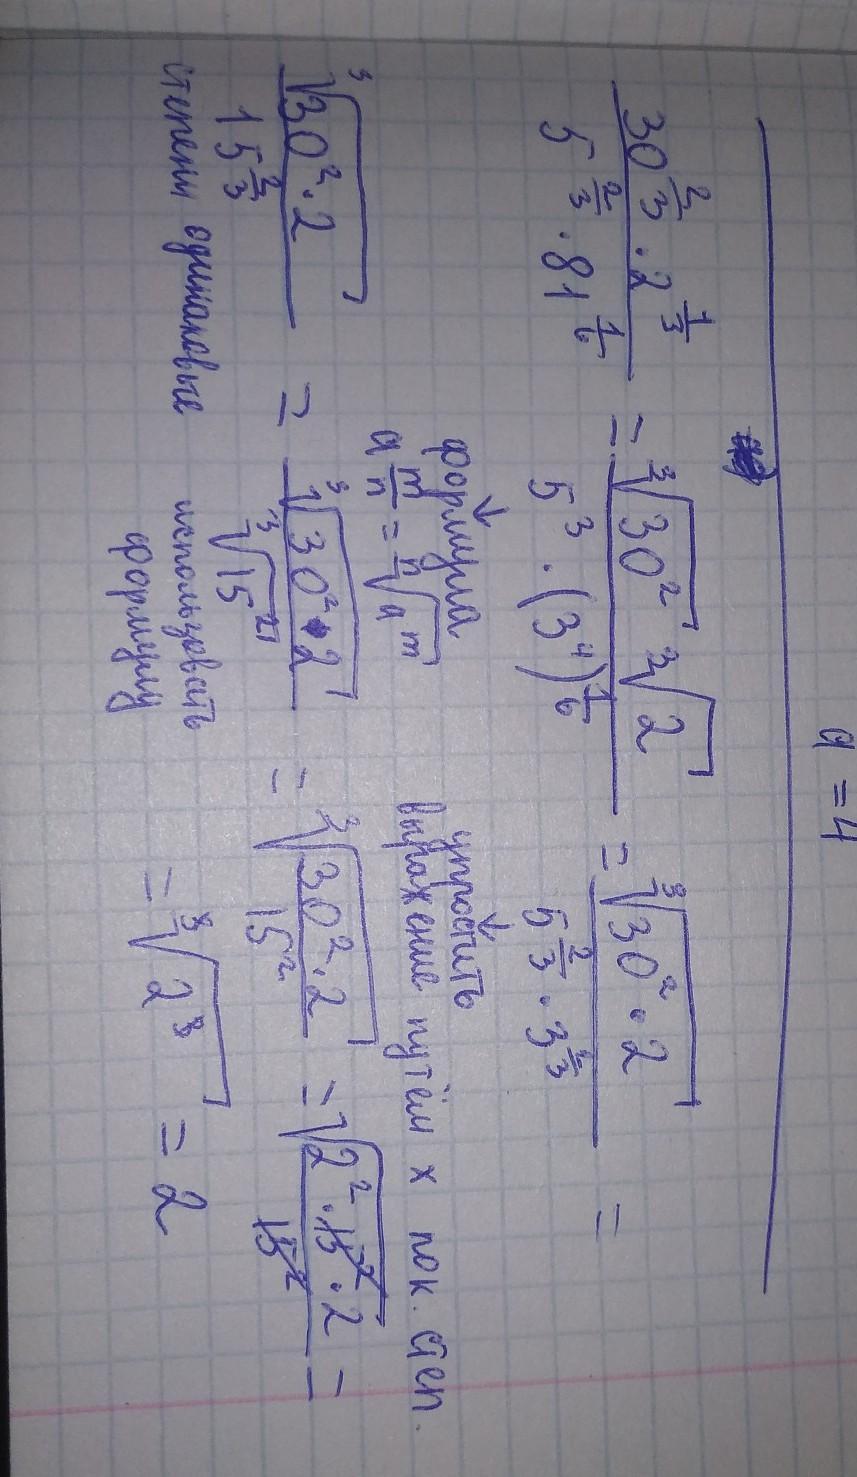 a = 4
\frac{30^{\frac{2}{3}} \cdot 2^{\frac{1}{3}}}{5^{\frac{2}{3}} \cdot 81^{\frac{1}{6}}} = \frac{\sqrt[3]{30^2} \sqrt[3]{2}}{5^3 \cdot (3^4)^{\frac{1}{6}}} = \frac{\sqrt[3]{30^2 \cdot 2}}{5^{\frac{2}{3}} \cdot 3^{\frac{2}{3}}} =
формула ↓ упростить ↓
a^{\frac{m}{n}} = \sqrt[n]{a^m} выражение путём х пок. степ.
\frac{\sqrt[3]{30^2 \cdot 2}}{15^{\frac{2}{3}}} = \frac{\sqrt[3]{30^2 \cdot 2}}{\sqrt[3]{15^2}} = \sqrt[3]{\frac{30^2 \cdot 2}{15^2}} = \sqrt{\frac{2^2 \cdot 15^2 \cdot 2}{15^2}} =
степени одинаковые использовать
формулу
= \sqrt[3]{2^3} = 2